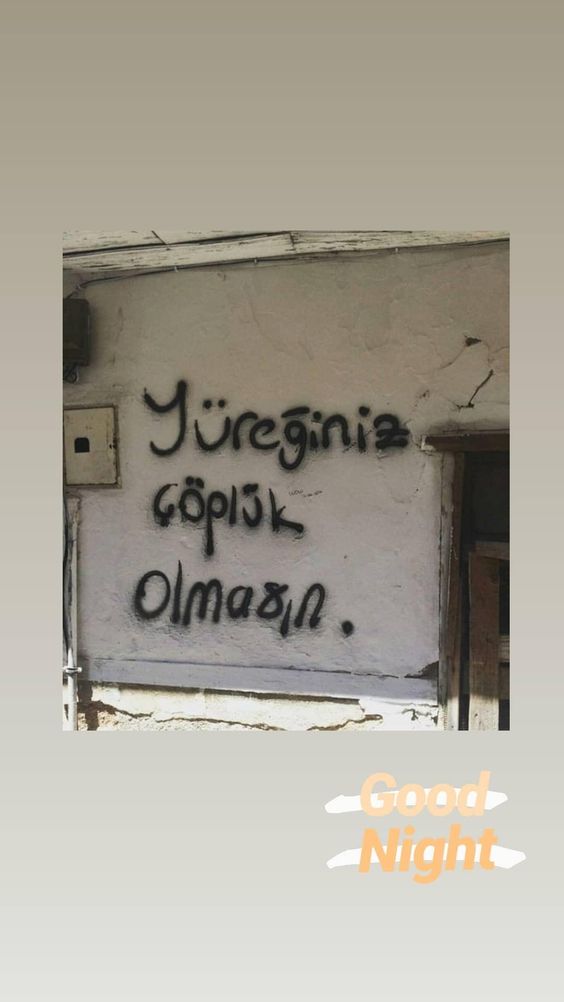 Yüreğiniz
çöplük
olmasın.
Good
Night